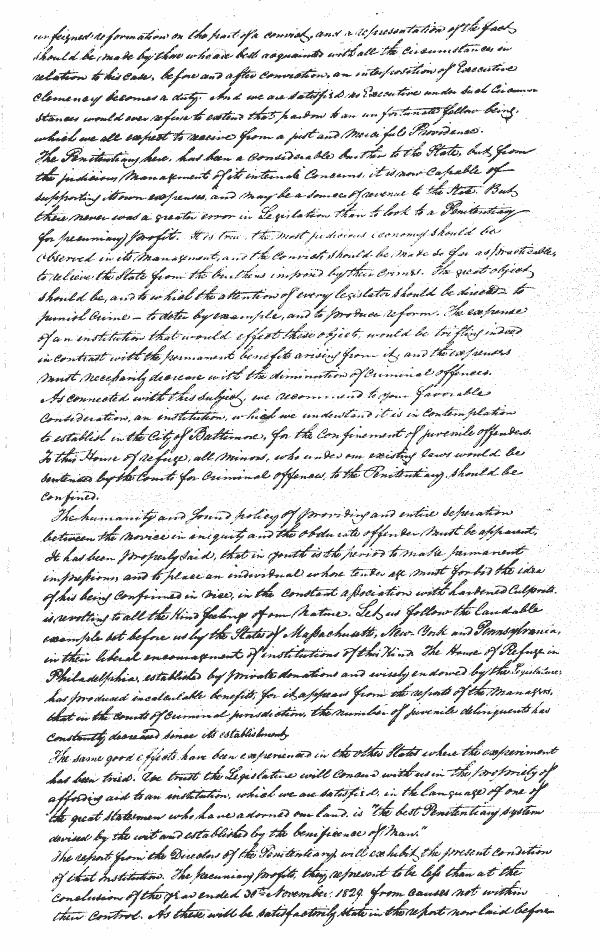 unfeigned reformation on the part of a convict, and a representation of the fact
should be, made by those who are best acquainted with all the circumstances in
relation to his case, before and after conviction, an interposition of Executive
clemency becomes a duty. And we are satisfied no Executive under such Circum
stances would ever refuse to extend that, pardon to an unfortunate fellow being,
which we all expect to receive from a just and Merciful Providence.
The Penitentiary here, has been a Considerable burthen to the State, but, from
the judicious Management of its internal Concerns, it is now Capable of
supporting its own expenses, and may be a source of revenue to the State. But
there never was a greater error in Legislation than to look to a Penitentiary
for pecuniary profit. It is true, the most judicious economy should be
observed in its Management, and the Convicts should be made so far as practicable,
to relieve the State from the burthens imposed by their Crimes. The great object,
should be, and to which the attention of every legislator should be directed - to
punish Crime - to deter by example, and to produce reform. The expense
of an institution that would effect these object, would be trifling indeed
in contrast with the permanent benefits arising from it, and the expenses
must necessarily decrease with the diminution of Criminal offences.
As connected with this subject, we recommend to your favorable
Consideration, an institution, which we understand it is in Contemplation
to establish in the City of Baltimore, for the Confinement of juvenile offenders.
To this House of refuge, all minors, who under our existing laws would be
sentenced by the Courts for Criminal offences, to the Penitentiary, should be
confined.
The humanity and sound policy of providing and entire seperation
between the novice in iniquity and the obdurate offender must be apparent,
It has been properly said, that in youth is the period to make permanent
impressions and to place an individual whose tender age must forbid the idea
of his being confirmed in vice, in the constant association with hardened Culprits
is revolting to all the Kind feelings of our Nature. Let, us follow the laudable
example set before us by the States of Massachusetts, New-York and Pennsylvania,
in their liberal encouragement of institutions of this Kind. The House of Refuge in
Philadelphia, established by private donations and wisely endowed by the Legislature,
has produced incalculable benefits, for it appears from the reports of the Managers,
that in the courts of Criminal jurisdiction, the number of juvenile delinquents has
constantly decreased since its establishment,
The same good effects have been experienced in the other States where the experiment
has been tried. We trust the Legislature will concur with us in the propriety of
affording aid to an institution, which we are satisfied, in the language of one of
the great Statesmen who have adorned our land, is "the best Penitentiary system
devised by the wit and established by the beneficence of Man."
The report from the Directors of the Penitentiary, will exhibit the present condition
of that institution. The pecuniary profits, they represent to be less than at the
conclusion of the year ended 30th November, 1829 from causes not within
their control. As these will be satisfactorily state in the report now laid before